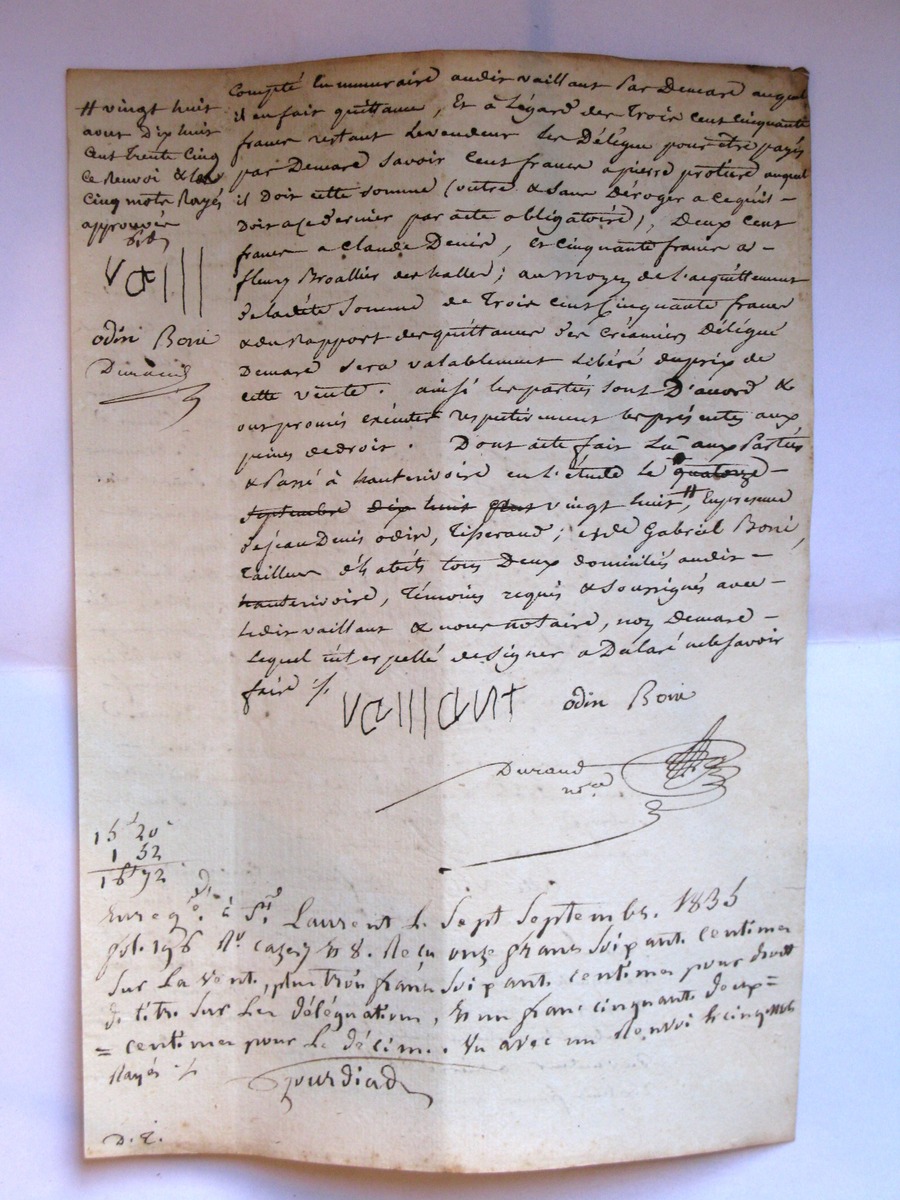 compté en numeraire audit vaillant par Demare auquel
il en fait quittance, Et à Légard des Trois cent cinquante
francs restant Levendeur Les Délègue pour être payés
par Demare savoir cent francs a pierre auquel
il doit cette somme (outre & sans Déroger a ce qu'il
doit a ce dernier par acte obligatoire), Deux cent
francs a Claude Denis, et cinquante francs a
fleury Broallier des halles; au moyen de l'acquittement
de ladite Somme de Trois cent Cinquante francs
& du Rapport des quittances des Créanciers Délégué
Demare sera valablement Libéré du prix de
cette vente. ainsi les parties sont D'accord &
ont promis exécuter respectivement les présentes aux
peines de droit. Dont acte fait Lu aux Parties
& Passé à hauterivoire en l'étude le quatorze
septembre dix huit cent vingt huit, En presence
de jean Denis odin, Tisserand; et de Gabriel Borie,
Tailleur d'habits tous Deux domiciliés audit
hauterivoire, Témoins requis & soussignés avec
Ledit vaillant & nous notaire, non Demare
Lequel interpellé de signer a Déclaré ne le savoir
faire ./.
# vingt huit
aout Dix huit
Cent Trente Cinq
ce Renvoi & les
Cinq mots Rayés
approuvés
vaill
odin Borie
Durand
vaillant odin Borie
Durand
nre
15 20
1 52
16 72
Enreg. à St. Laurent le Sept Septembr. 1835
fol. 196 Ro. cases 7 & 8. Reçu onze francs soixant. centimes
sur La vent., plus trois francs soixant. centimes pour droit
de titr. sur Les délégations, & un franc cinquant. deux =
= centimes pour Le décim.. Vu avec un Renvoi & cinq mots
Rayés ./.
Jourdiad
D. E.